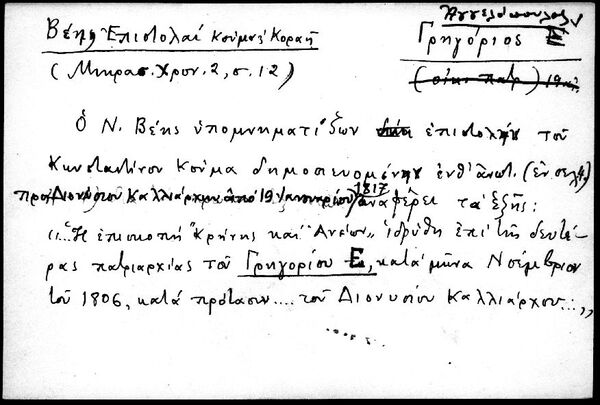 Βέης Ἐπιστολαί Κούμα Κοραῆ
Ἀγγελόπουλος
Γρηγόριος Ε
(Μικρασ. Χρον. 2, σ. 12)
(οἰκ. πατρ) 19
Ὁ Ν. Βέης ὑπομνηματίζων ἐπιστολὴν τοῦ
Κωνσταντίνου Κούμα δημοσιευομένην ἐνθ' ἀνωτ. (ἐν σελ. 4)
πρὸς Διονύσιον Καλλιάρχην ἀπό 19 Ἰαννουαρίου 1817 ἀναφέρει τά ἑξῆς:
"...Ἡ ἐπισκοπή Κρήνης καί Ἀνέων" ἱδρύθη ἐπί τῆς δευτέ-
ρας πατριαρχίας τοῦ Γρηγορίου Ε, κατά μῆνα Νοέμβριον
τοῦ 1806, κατά πρότασιν.... τοῦ Διονυσίου Καλλιάρχου...,,